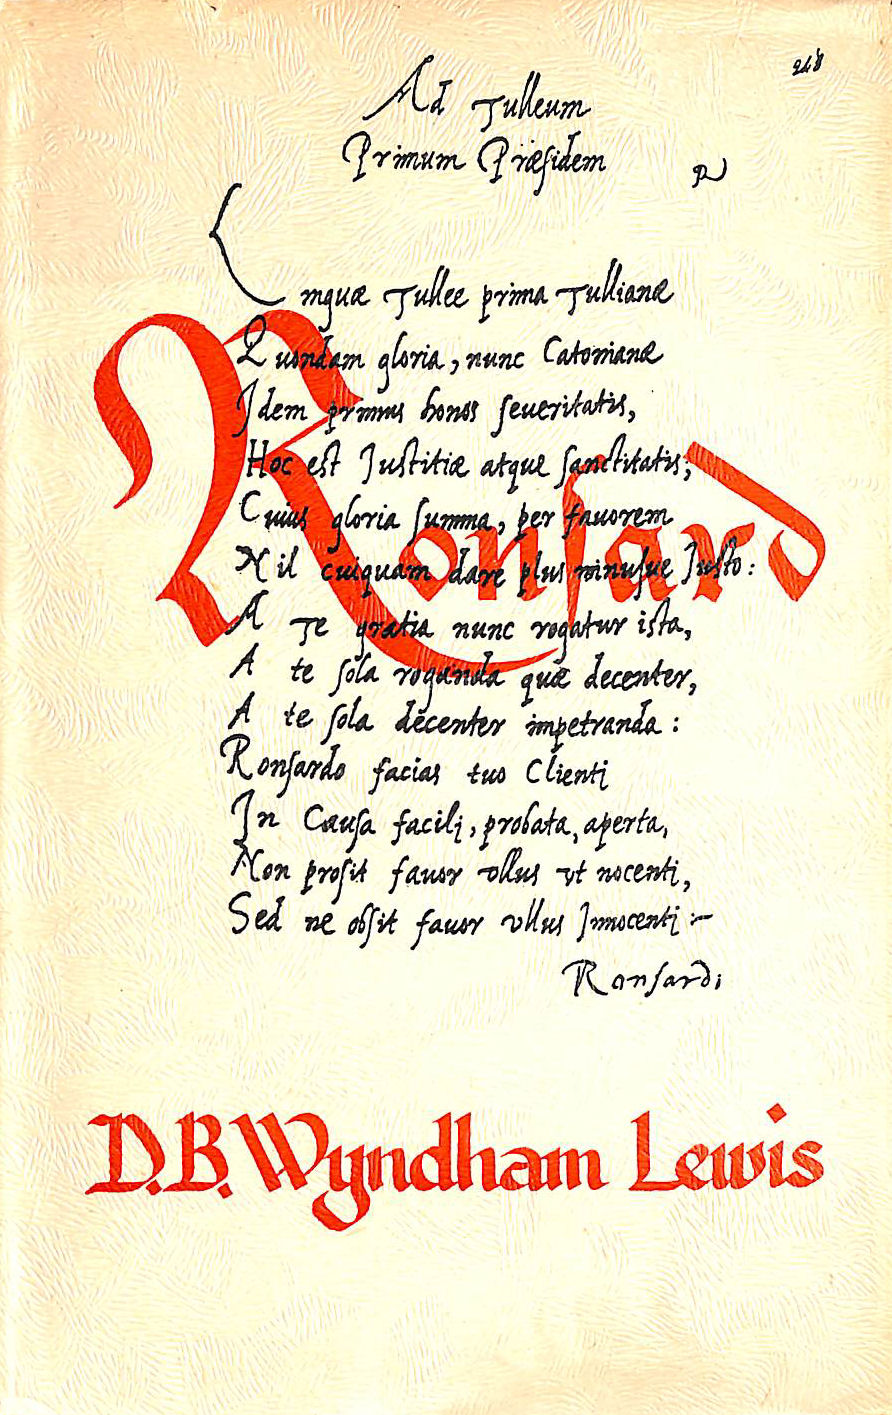 248
Ad Tulleum
Primum Præsidem
R
Linguæ Tullee prima Tullianæ
Quondam gloria, nunc Catonianæ
Idem primus honos seueritatis,
Hoc est Justitiæ atque sanctitatis;
Cuius gloria summa, per fauorem
Nil cuiquam dare plus minusue Justo:
A Te gratia nunc rogatur ista,
A te sola roganda quæ decenter,
A te sola decenter impetranda:
Ronsardo facias tuo Clienti
In Causa facili, probata, aperta,
Non prosit fauor vllus vt nocenti,
Sed ne obsit fauor vllus Innocenti:~
Ronsard;
Ronsard
D.B. Wyndham Lewis